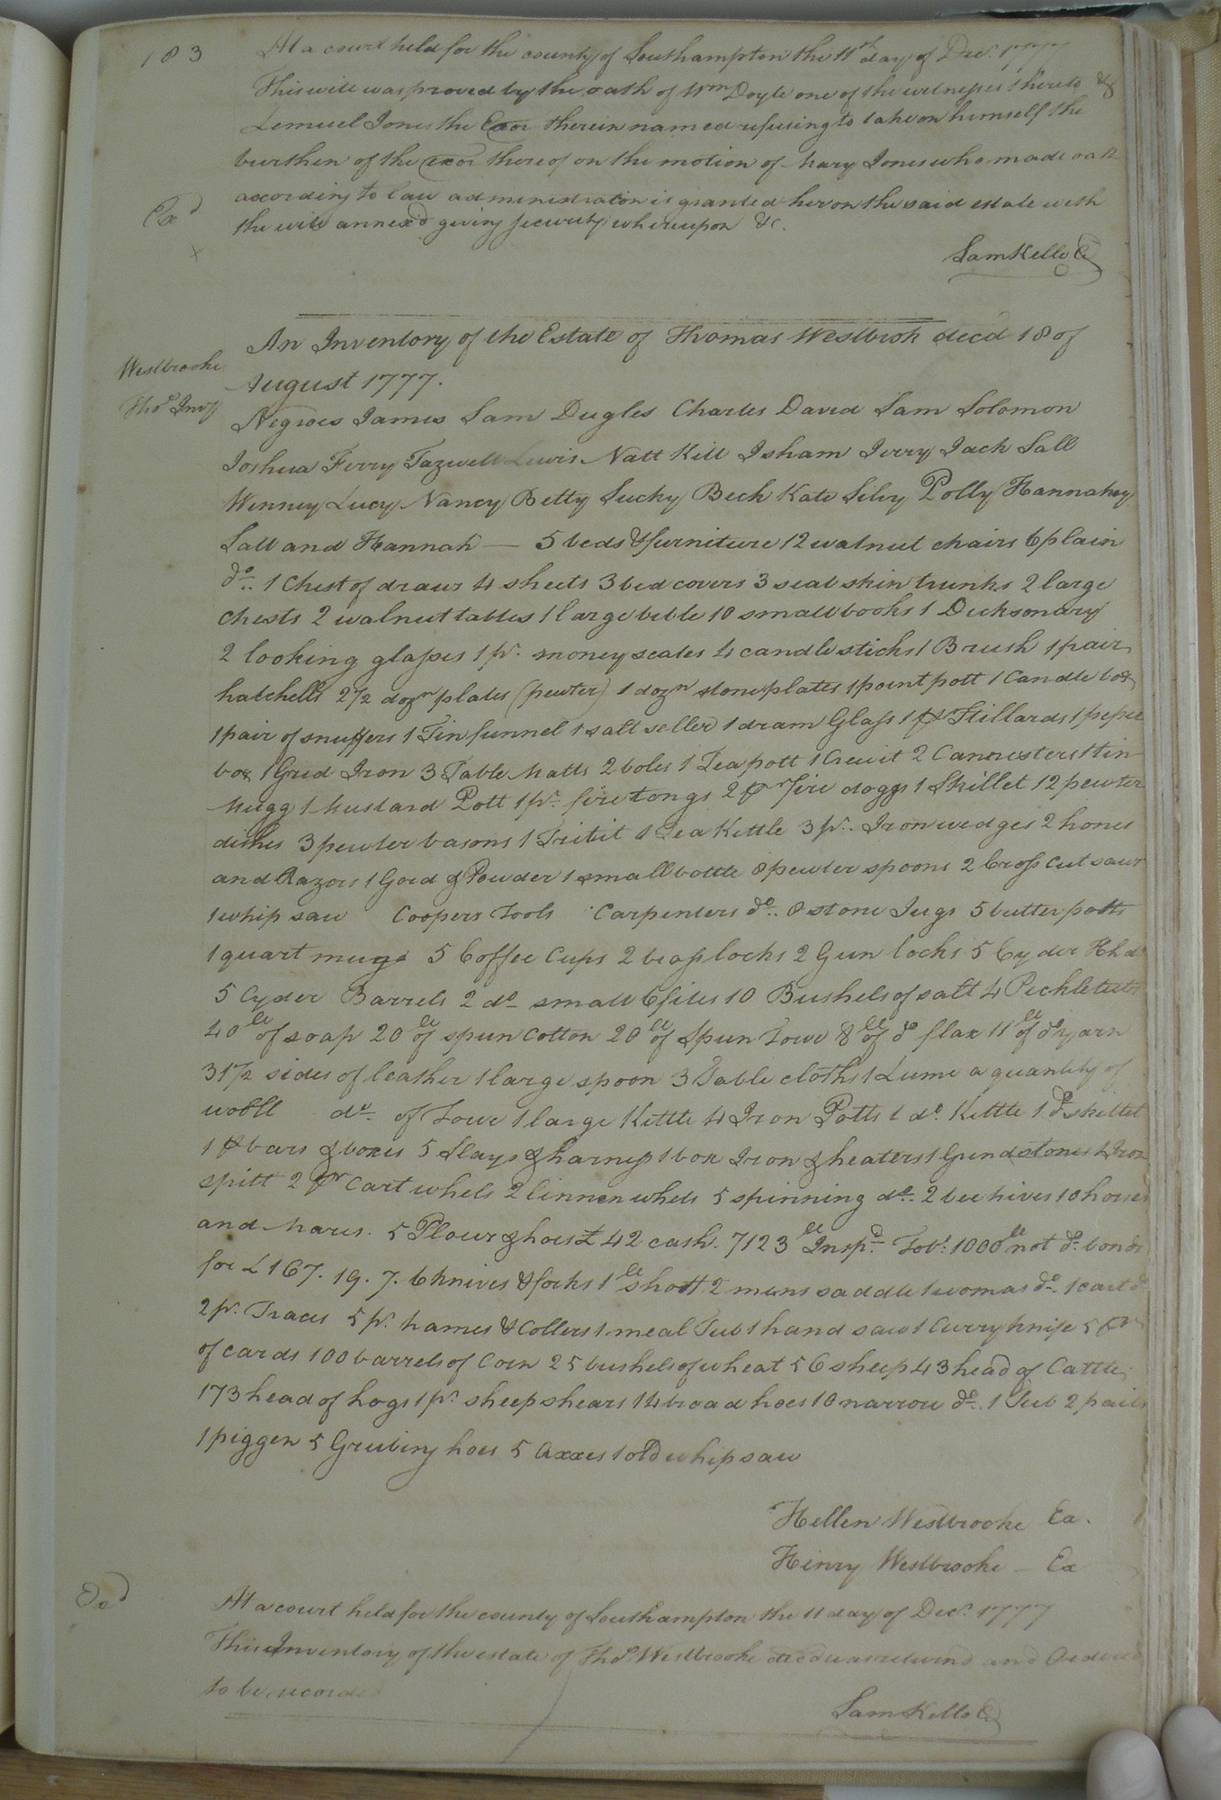 183
At a court held for the county of Southampton the 11th day of Decr. 1777
This will was proved by the oath of Wm Doyle one of the witnesses thereto &
Lemuel Jones the Exor therein named refusing to take on himself the
burthen of the exor thereof on the motion of Mary Jones who made oath
according to law administration is granted her on the said estate with
Exd
the will annex'd giving security whereupon &c.
Sam Kello C
An Inventory of the Estate of Thomas Westbrook decd 18 of
Westbrooke
August 1777.
Thos Invy
Negroes James Sam Dugles Charles David Sam Solomon
Joshua Ferry Tazwell Lewis Natt Kitt Isham Jerry Jack Sall
Winney Lucy Nancy Betty Sucky Beck Kate Silvy Polly Hannahy
Sall and Hannah — 5 beds & furniture 12 walnut chairs 6 plain
do. 1 Chest of draws 4 sheets 3 bed covers 3 seal skin trunks 2 large
chests 2 walnut tables 1 large bible 10 small books 1 Dicksonary
2 looking glasses 1 pr. money scales 4 candlesticks 1 Brush 1 pair
hatchells 2 1/2 dozn plates (pewter) 1 dozn stone plates 1 point pott 1 Candle box
1 pair of snuffers 1 Tin funnel 1 salt seller 1 dram Glass 1 pr Stillards 1 peper
box 1 Grid Iron 3 Table Matts 2 boles 1 Teapott 1 Cruit 2 Cannesters 1 tin
Mugg 1 Mustard Pott 1 pr. fire tongs 2 pr Fire doggs 1 Skillet 12 pewter
dishes 3 pewter basons 1 Trivit 1 Tea Kettle 3 pr. Iron wedges 2 hones
and Razors 1 Gord & Powder 1 small bottle 8 pewter spoons 2 Cross Cut saws
1 whip saw Coopers Tools Carpenters do. 8 stone Jugs 5 butter potts
1 quart mugs 5 Coffee Cups 2 brass locks 2 Gun locks 5 Cyder Hhds
5 Cyder Barrels 2 do small 6 files 10 Bushels of salt 4 Pickle tubs
40 ll of soap 20 ll of spun Cotton 20 ll of Spun Towe 8 ll of do flax 11 ll of do yarn
31 1/2 sides of leather 1 large spoon 3 Table cloths 1 Lume a quantity of
wooll do of Towe 1 large Kettle 4 Iron Potts 1 do. Kettle 1 do skillet
1 pr bars & boxes 5 Slays & harness 1 box Iron & heaters 1 Grindstones 1 Iron
spitt 2 pr Cart whels 2 linnen whels 5 spinning do. 2 bee hives 10 horses
and Mares. 5 Plows & hoes £42 cash. 7123 ll Inspd. Tobo. 1000 ll not do. bonds
for £167. 19. 7. 6 knives & forks 1 ll shott 2 mens saddle 1 womas do. 1 cart do
2 pr. Traces 5 pr. hames & Collers 1 meal Tub 1 hand saw 1 Curry knife 5 pr
of cards 100 barrels of Corn 25 bushels of wheat 56 sheep 43 head of Cattle
173 head of hogs 1 pr. sheep shears 14 broad hoes 10 narrow do. 1 Tub 2 pails
1 piggen 5 Grubing hoes 5 axxes 1 old whip saw
Hellen Westbrooke Ex.
Henry Westbrooke — Ex
Exd
At a court held for the county of Southampton the 11 day of Decr. 1777
This Inventory of the estate of Thos Westbrooke decd was returnd and Ordered
to be recorded
Sam Kello C